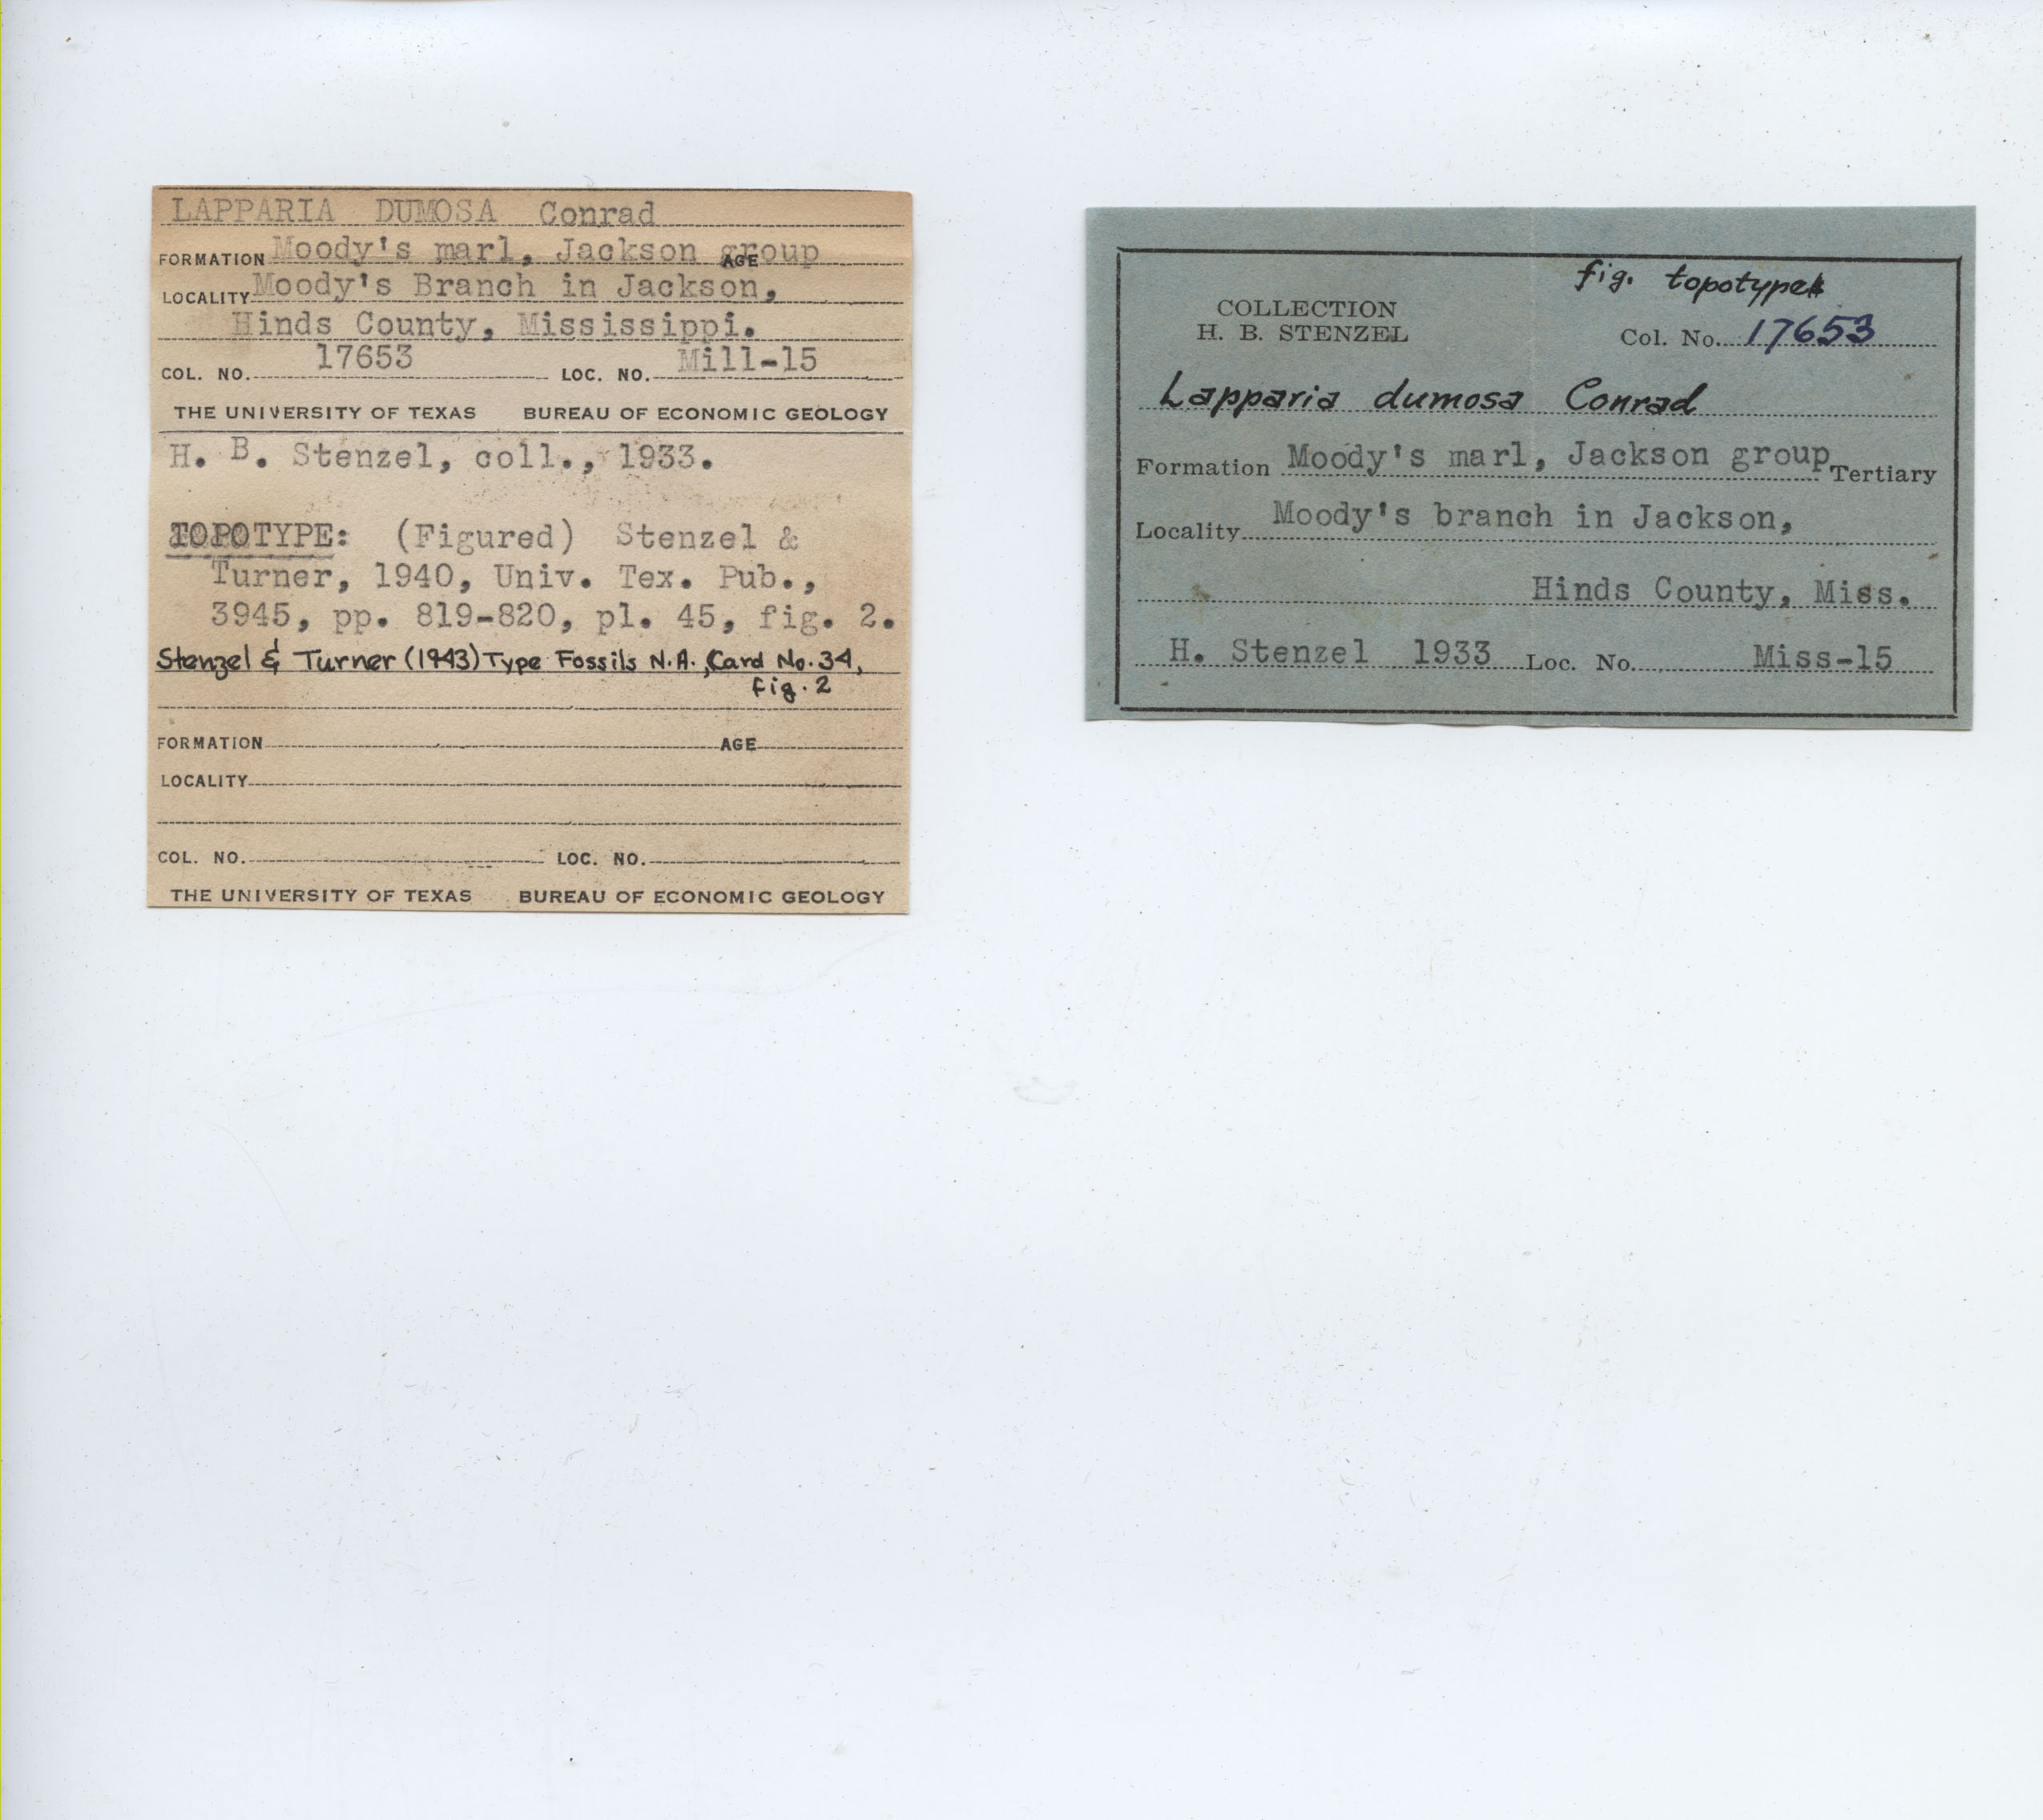 LAPPARIA DUMOSA Conrad
FORMATION Moody's marl, Jackson group AGE
LOCALITY Moody's Branch in Jackson,
Hinds County, Mississippi.
COL. NO. 17653 LOC. NO. Mill-15
THE UNIVERSITY OF TEXAS BUREAU OF ECONOMIC GEOLOGY
H. B. Stenzel, coll., 1933.
TOPOTYPE: (Figured) Stenzel &
Turner, 1940, Univ. Tex. Pub.,
3945, pp. 819-820, pl. 45, fig. 2.
Stenzel & Turner (1943) Type Fossils N.A., Card No. 34,
fig. 2
FORMATION AGE
LOCALITY
COL. NO. LOC. NO.
THE UNIVERSITY OF TEXAS BUREAU OF ECONOMIC GEOLOGY
fig. topotype
COLLECTION
H. B. STENZEL
Col. No. 17653
Lapparia dumosa Conrad
Formation Moody's marl, Jackson group Tertiary
Locality Moody's branch in Jackson,
Hinds County, Miss.
H. Stenzel 1933 Loc. No. Miss-15